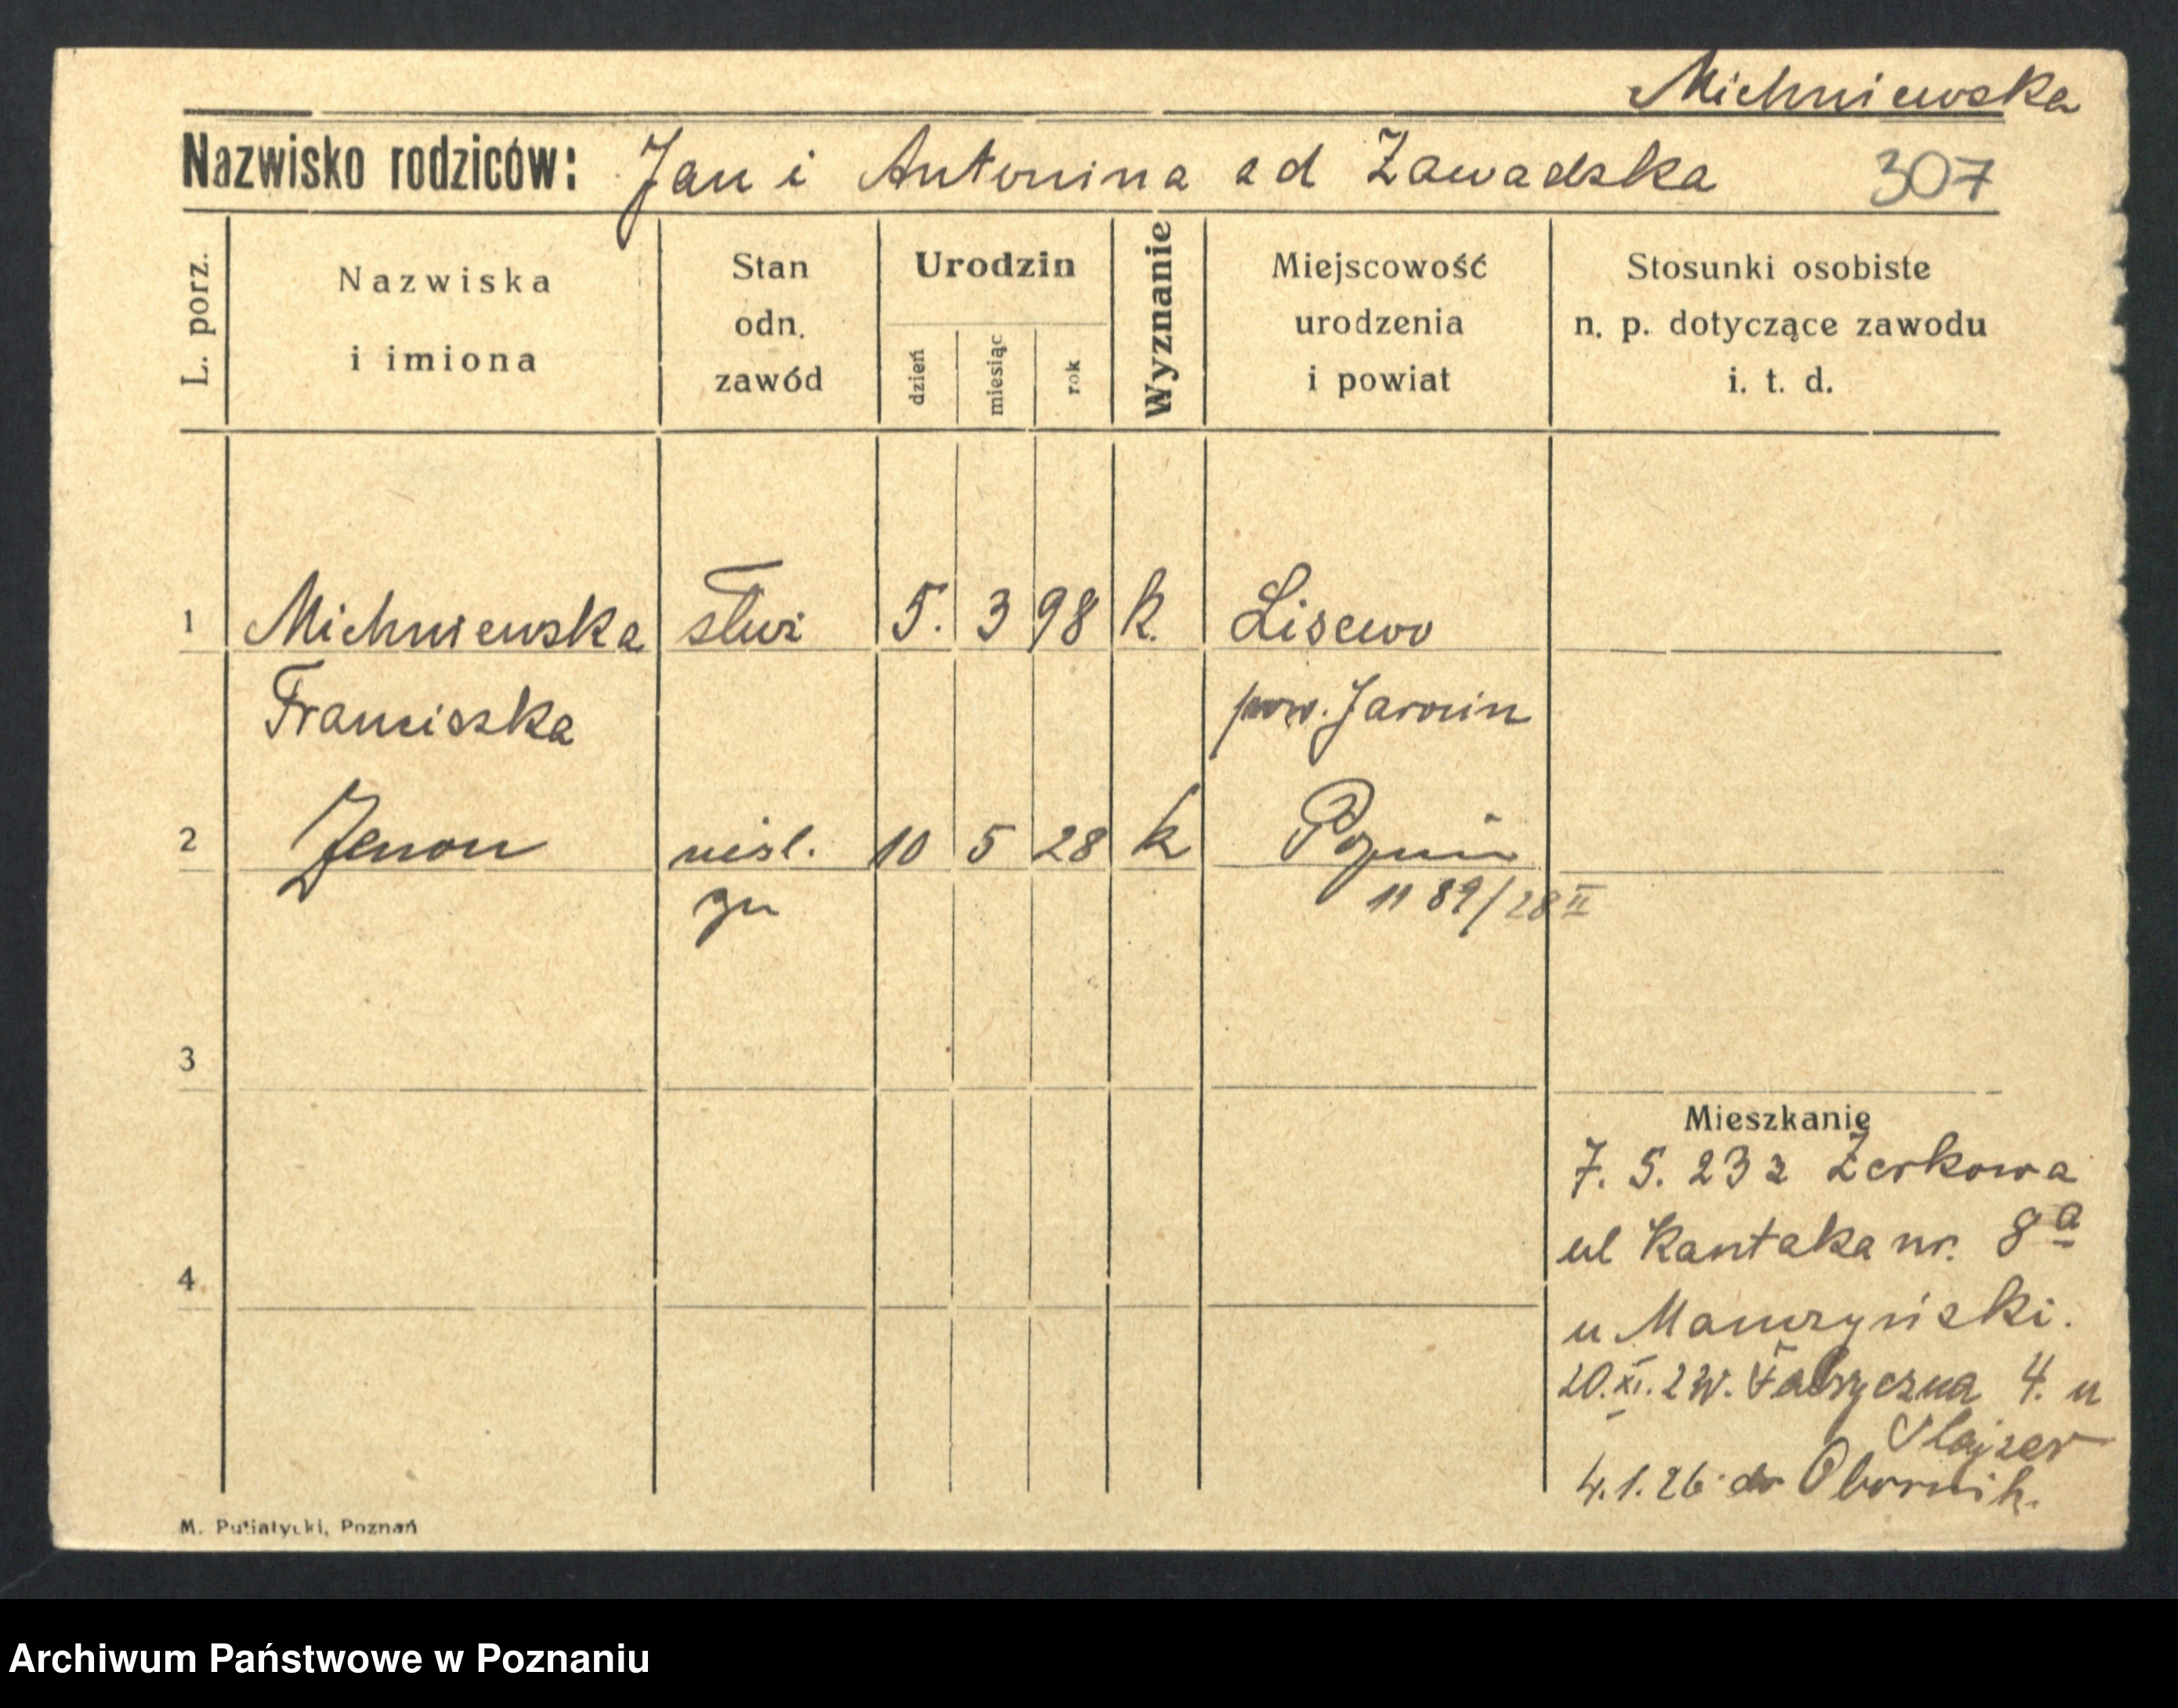 Michniewska
Nazwisko rodziców: Jan i Antonina ad Zawadzka 307
L. porz.
Nazwiska
i imiona
Stan
odn.
zawód
Urodzin
dzień
miesiąc
rok
Wyznanie
Miejscowość
urodzenia
i powiat
Stosunki osobiste
n. p. dotyczące zawodu
i. t. d.
1 Michniewska służ 5. 3 98 k. Lisewo
Franciszka pow. Jarocin
2 Zenon nieśl. 10 5 28 k Poznań
1189/28 II
3
Mieszkanie
7. 5. 23 z Żerkowa
4
ul Kantaka nr. 8a
u
20.XI. Fabryczna 4. u
4.1.26 do Obornik.
M. Putiatycki, Poznań
Archiwum Państwowe w Poznaniu